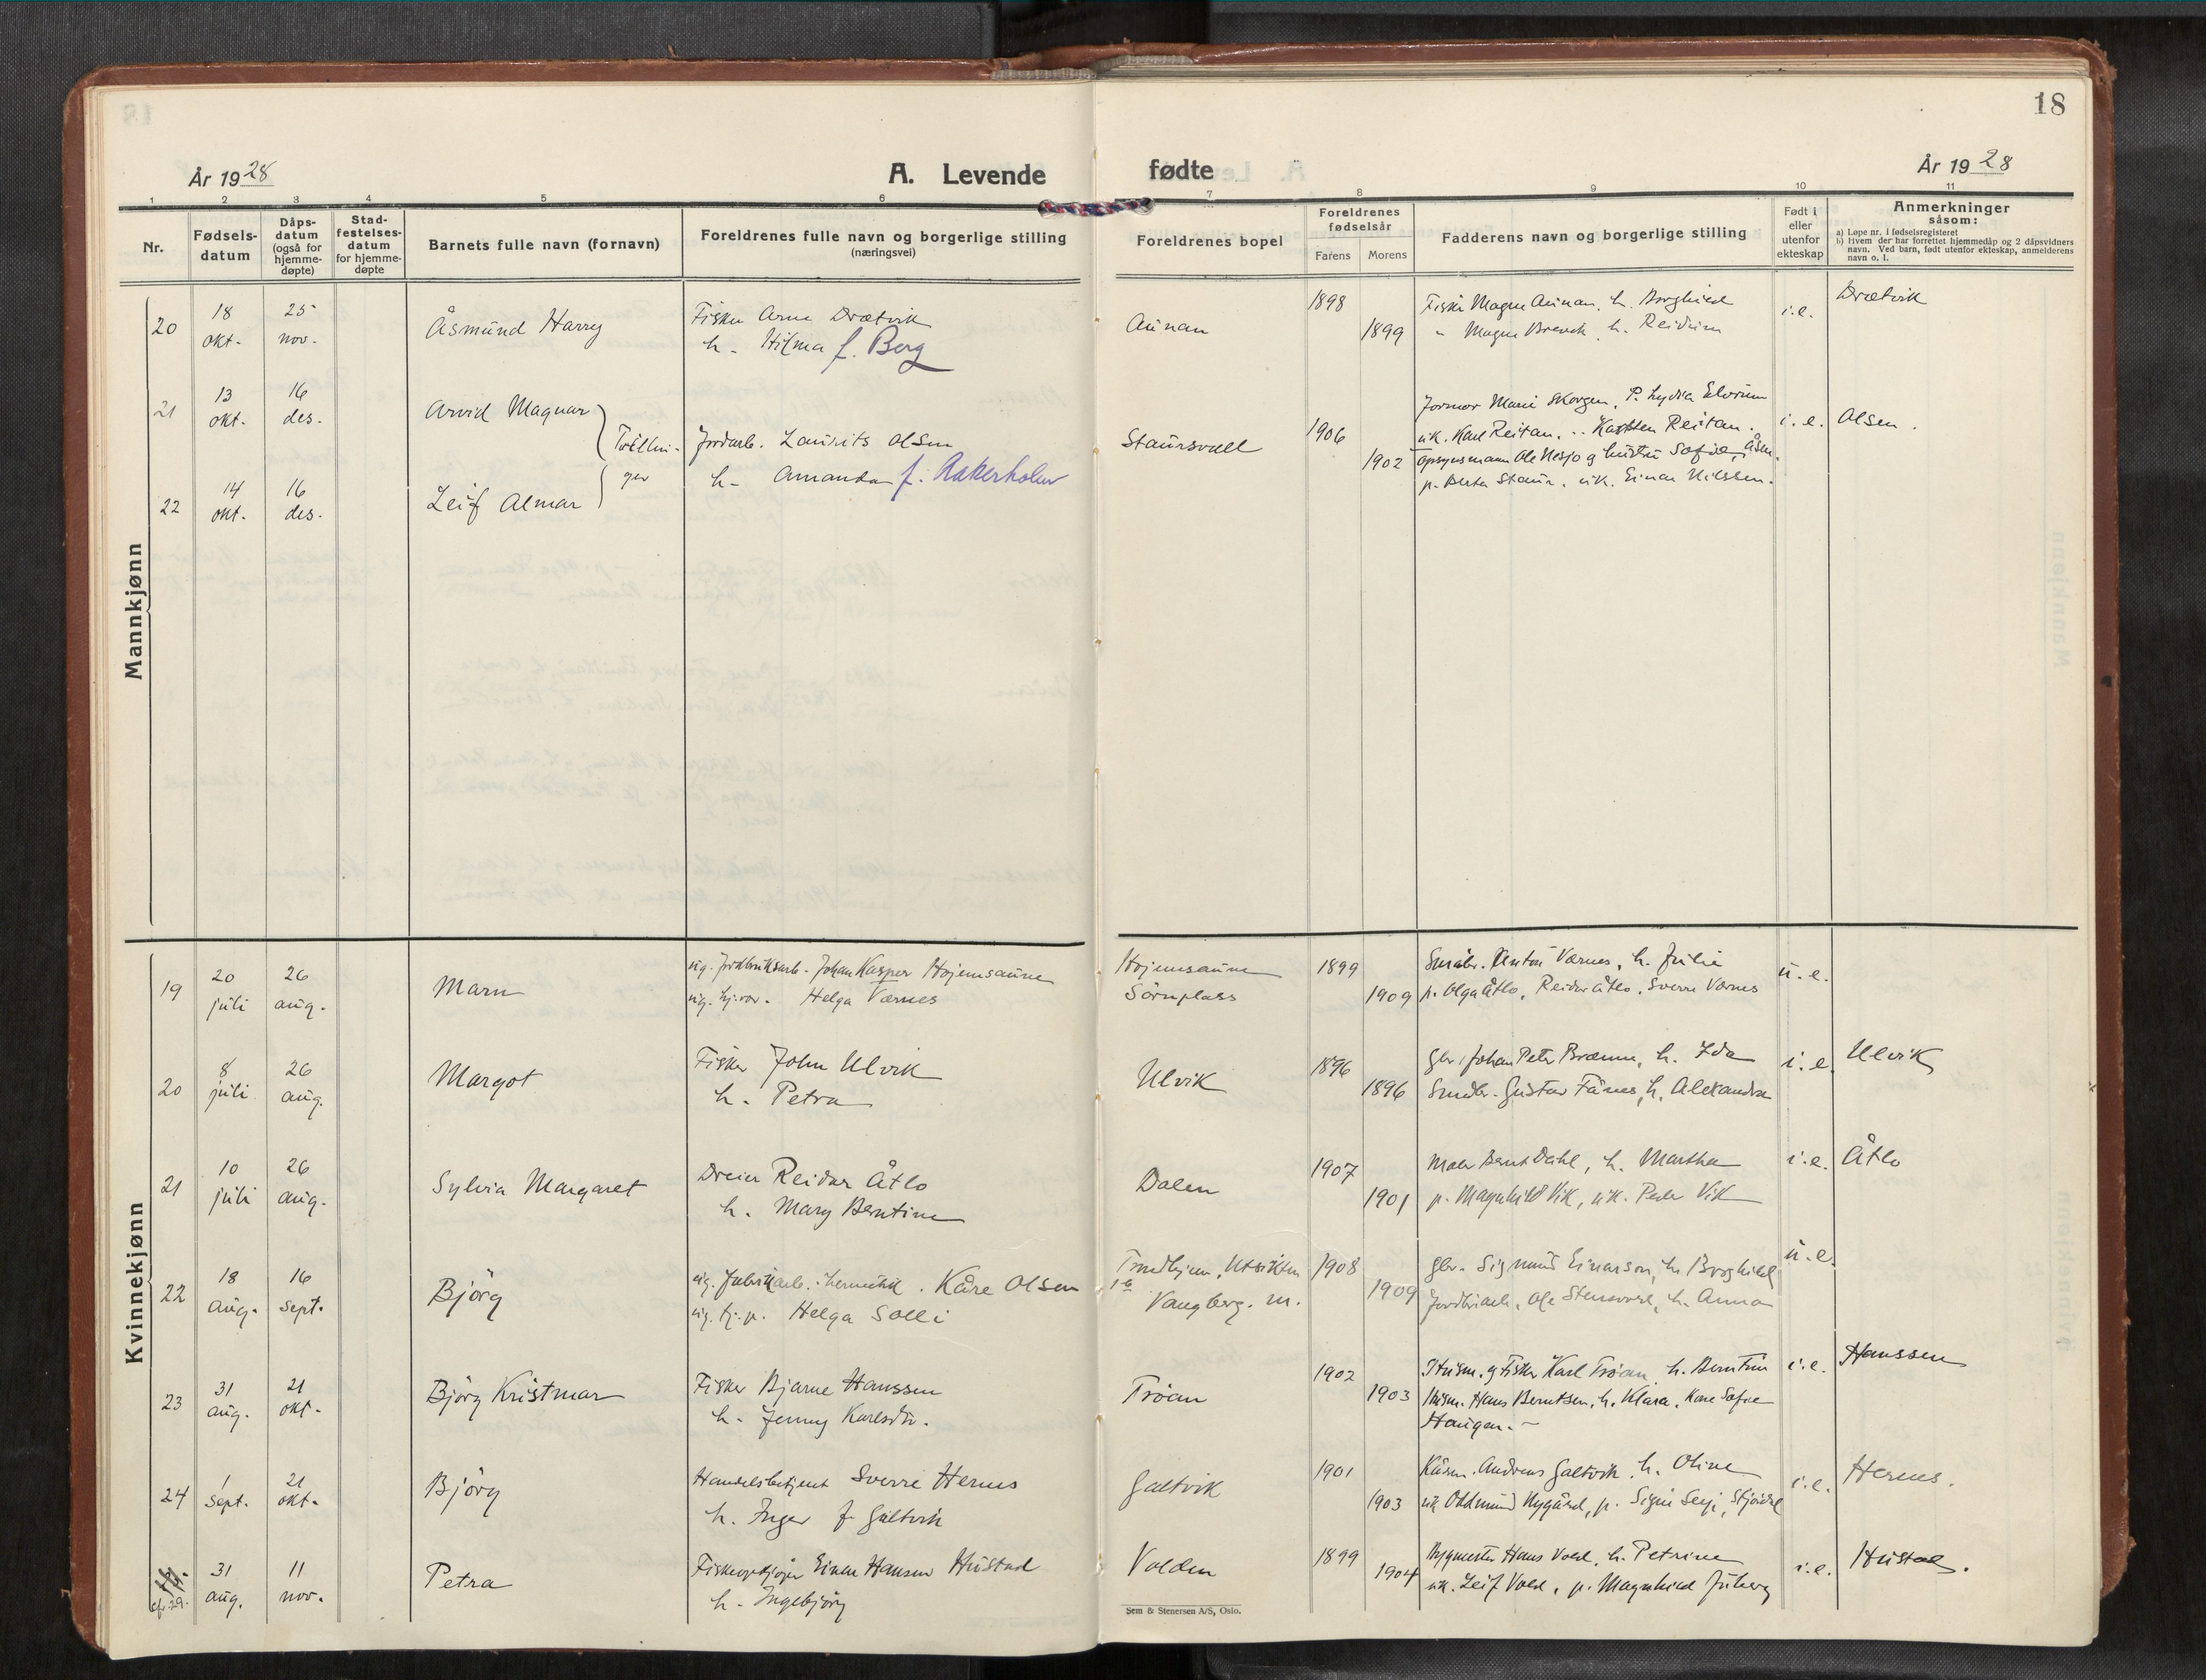 18
År 1928
A. Levende
fødte
År 1928
1 2 3 4 5 6 7 8 9 10 11
Nr.
Fødsels-
datum
Dåps-
datum
(også for
hjemme-
døpte)
Stad-
festelses-
datum
for hjemme-
døpte
Barnets fulle navn (fornavn)
Foreldrenes fulle navn og borgerlige stilling
(næringsvei)
Foreldrenes bopel
Foreldrenes
fødselsår
Farens Morens
Fadderens navn og borgerlige stilling
Født i
eller
utenfor
ekteskap
Anmerkninger
såsom:
a) Løpe nr. i fødselsregisteret
b) Hvem der har forrettet hjemmedåp og 2 dåpsvidners
navn. Ved barn, født utenfor ekteskap, anmelderens
navn o. l.
Mannkjønn
20
18
okt.
25
nov.
Åsmund Harry
Fisker Arne Drætvik
h. Hilma f. Berg
Aunan
1898
1899
Fisker Magne Aunan, h. Borghild
" Magne Brevik, h. Reidun
i.e.
Drætvik
21
13
okt.
16
des.
Arvid Magnar
Tvillin-
ger
Jordarb. Laurits Olsen
h. Amanda f. Aakerholm
Staursvall
1906
1902
Formor Marie Skorgen, P. Lydia Elvrum
uk. Karl Reitan, .. Karsten Reitan.
Opsynsmann Ole Nesjø og hustru Sofie, Åsen.
p. Berta Staur, uk. Einar Nilssen.
i.e.
Olsen.
22
14
okt.
16
des.
Leif Almar
Kvinnekjønn
19
20
juli
26
aug.
Marn
ug. Jordbruksarb. Johan Kasper Hojemsaune
ug. Helga Værnes
Hojemsaune
Sörnplass
1899
1909
Småbr. Anton Værnes, h. Julie
p. Olga Åtlo, Reidar Åtlo, Sverre Værnes
u.e.
20
8
juli
26
aug.
Margot
Fisker John Ulvik
h. Petra
Ulvik
1896
1896
Gbr. Johan Peter Bræmn, h. Ida
Småbr. Gustav Fånes, h. Alexandra
i.e.
Ulvik
21
10
juli
26
aug.
Sylvia Margaret
Dreier Reidar Åtlo
h. Mary Berntine
Dalen
1907
1901
Maler Bernt Dahl, h. Martha
p. Magnhild Vik, uk. Peder Vik
i.e.
Åtlo
22
18
aug.
16
sept.
Björg
ug. Fabrikarb. hermetikk. Kåre Olsen
ug. tj.p. Helga Solli
Trondhjem, Utsikten
16
Vangberg. m.
1908
1909
Gbr. Sigmund Einarson, h. Borghild
Jordbrarb. Ole Stensvad, h. Anna
u.e.
23
31
aug.
21
okt.
Björg Kristmar
Fisker Bjarne Hanssen
h. Jenny Karlsdtr.
Tröan
1902
1903
Husm. og Fisker Karl Tröan, h. Berntine
Husm. Hans Berntsen, h. Klara, Kone Sofie
Haugan.
i.e.
Hanssen
24
1
sept.
21
okt.
Björg
Handelsbetjent Sverre Hernes
h. Inger f. Galtvik
Galtvik
1901
1903
Kårm. Andreas Galtvik, h. Oline
uk. Oddmund Nygård, p. Signe
i.e.
Hernes.
cfr. 29.
31
aug.
11
nov.
Petra
Fiskeopkjøper Einar Hansen Hustad
h. Ingebjörg
Volden
1899
1904
Bygmester Hans Vold, h. Petrine
uk. Leif Vold, p. Magnhild Juberg
i.e.
Hustad.
Sem & Stenersen A/S, Oslo.